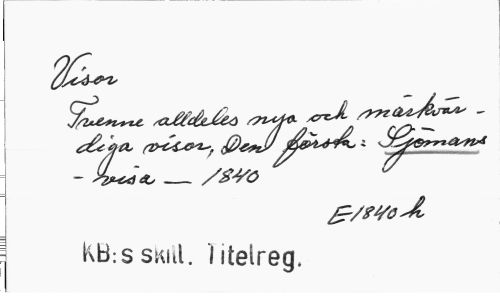 Visor
Tvenne alldeles nya och märkvär-
diga visor, Den första: Sjömans
- visa — 1840
E1840h
KB:s skill. Titelreg.